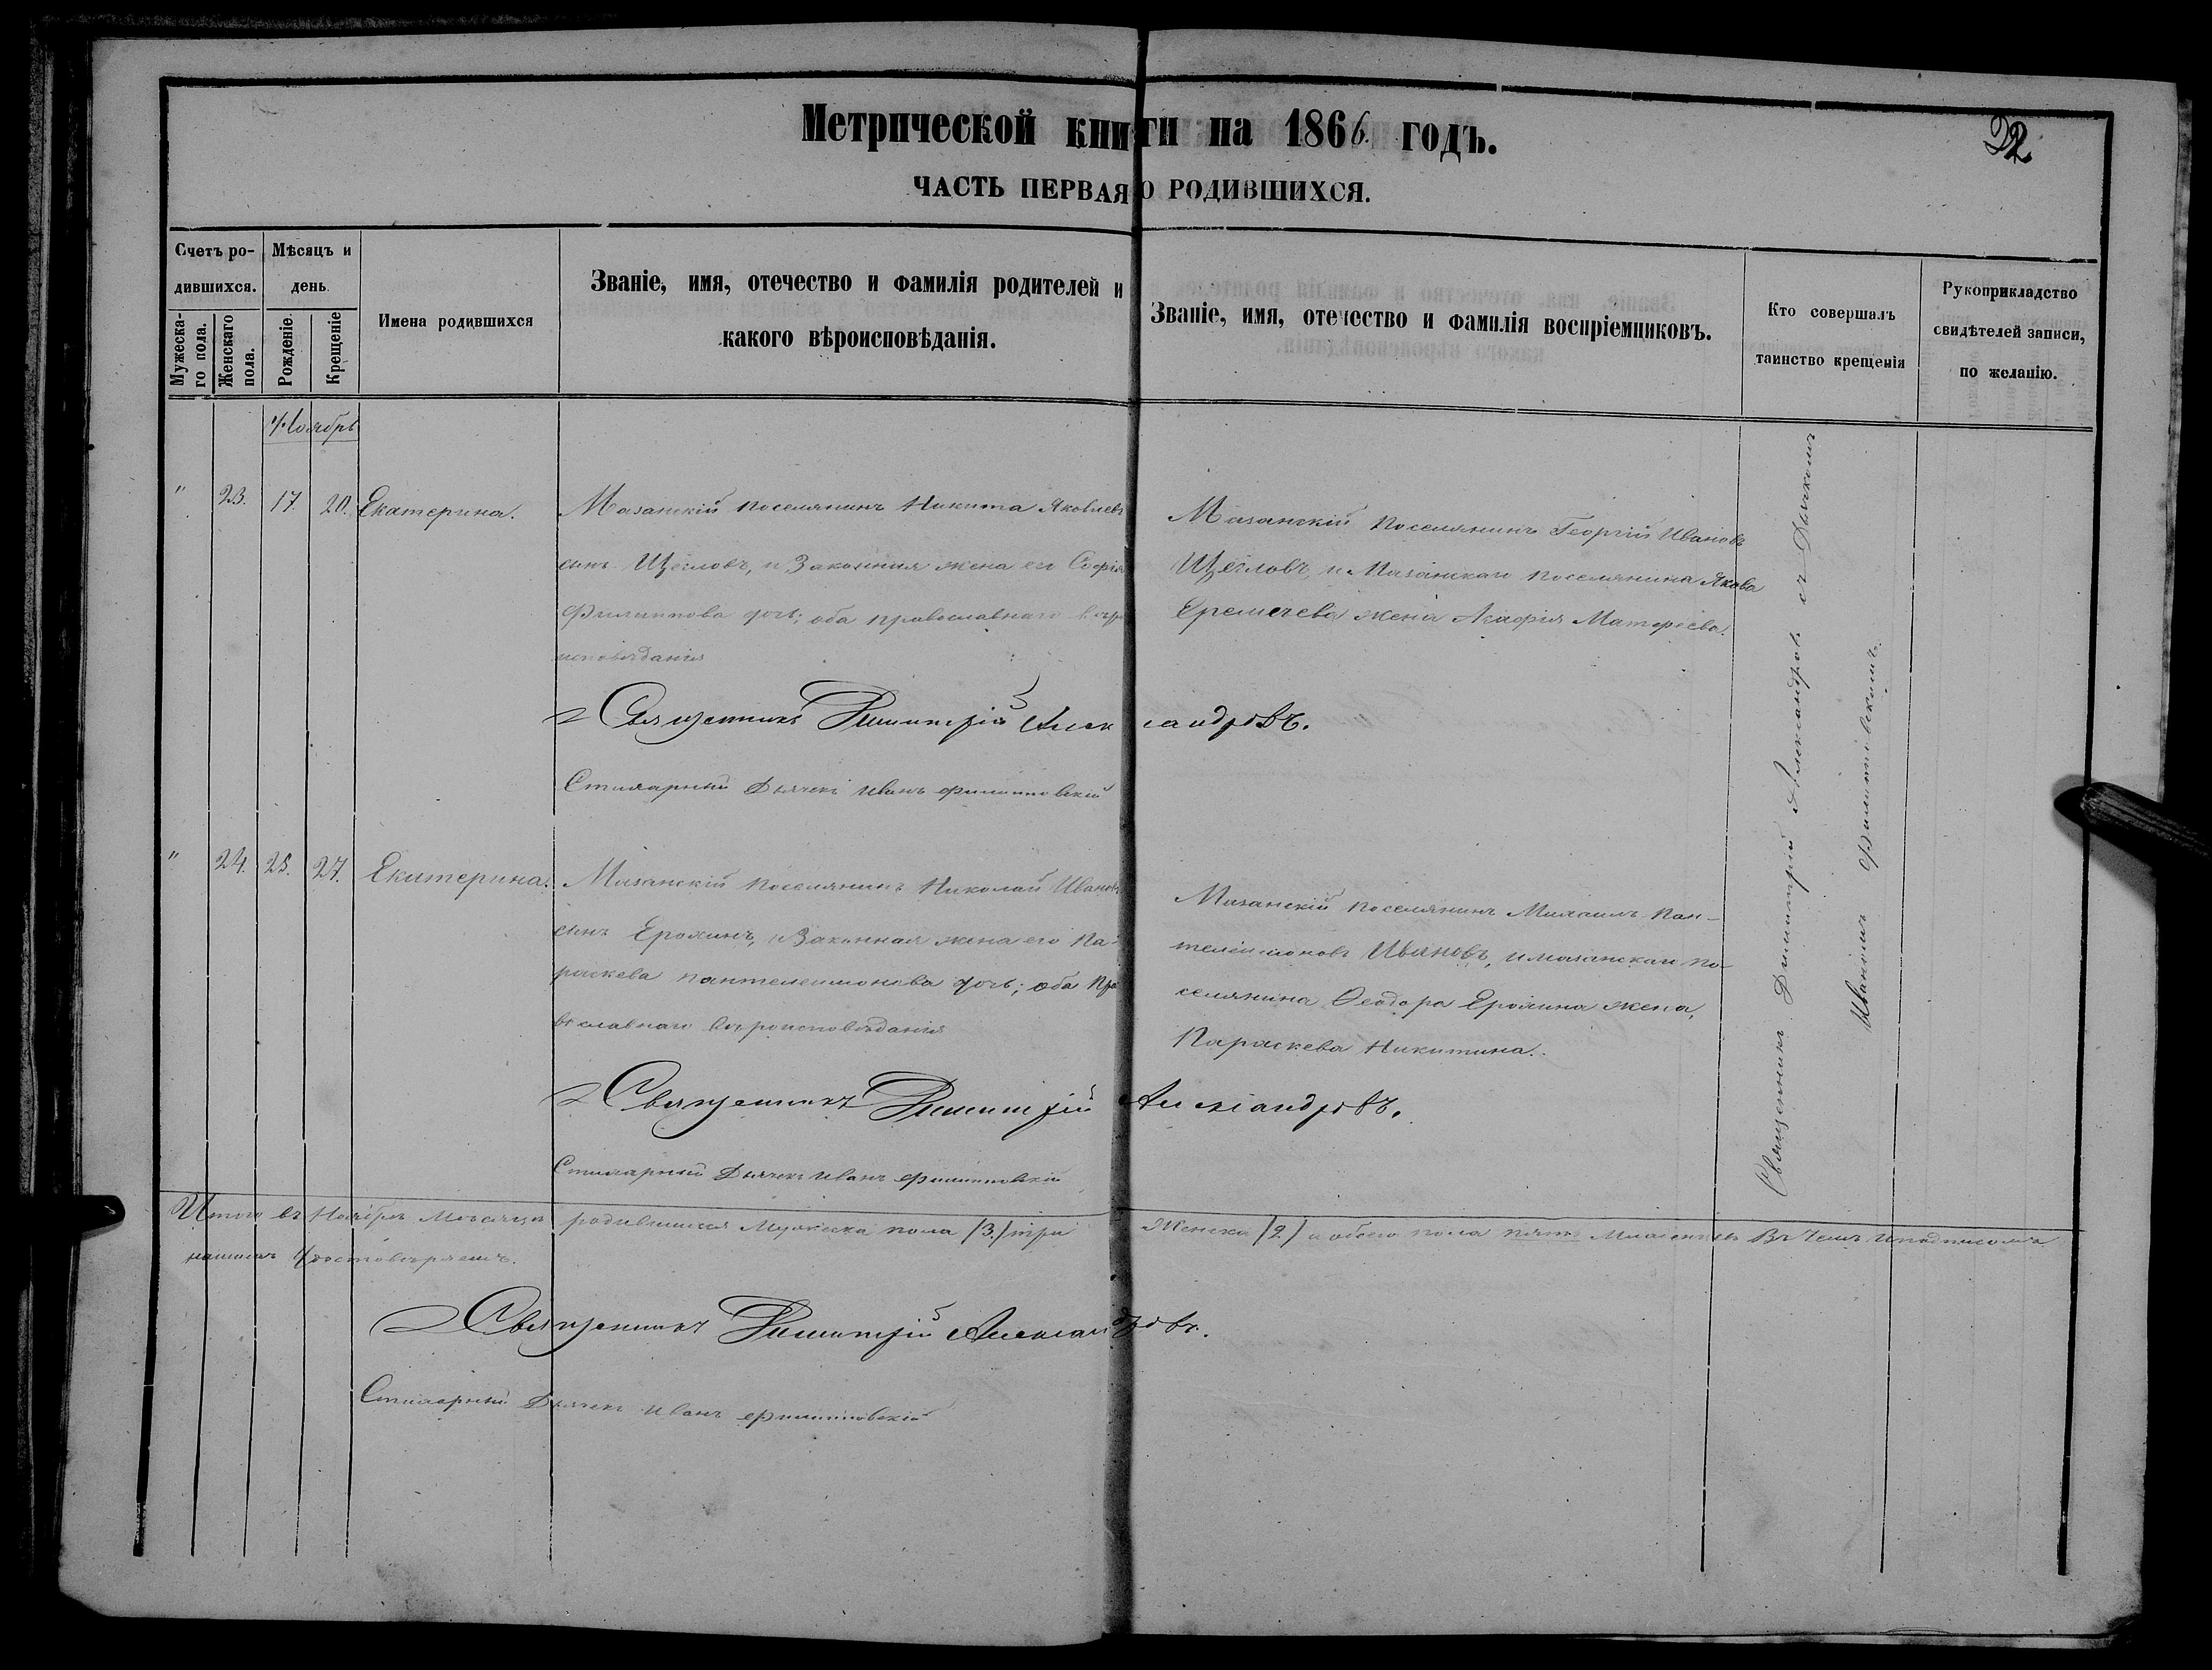 Метрической книги на 1866. годъ.
22
ЧАСТЬ ПЕРВАЯ О РОДИВШИХСЯ.
Счетъ ро-
дившихся.
Мужеска-
го пола.
Женскаго
пола.
Мѣсяцъ и
день.
Рожденіе.
Крещеніе
Имена родившихся
Званіе, имя, отечество и фамилія родителей и
какого вѣроисповѣданія.
Званіе, имя, отечество и фамилія воспріемниковъ.
Кто совершалъ
таинство крещенія
Рукоприкладство
свидѣтелей записи,
по желанію.
Ноябрь
" 23. 17. 20. Екатерина.
Мазанскій поселянинъ Никита Яковлевъ
сынъ Щегловъ, и Законная жена его Софія
Филиппова дочь; оба православнаго вѣро
исповѣданія
Мазанскій поселянинъ Георгій Ивановъ
Щегловъ, и Мазанскаго поселянина Якова
Еремечева жена Агафія Матфеева.
Священникъ Димитрій Александровъ.
Стихарный Дьячекъ Иванъ Филипповскій
" 24. 25. 27. Екатерина.
Мазанскій поселянинъ Николай Ивановъ
сынъ Ерохинъ, и Законная жена его Па-
раскева Пантелеимонова дочь; оба пра
вославнаго вѣроисповѣданія
Мазанскій поселянинъ Михаилъ Пан-
телеимоновъ Ивановъ, и мазанскаго по-
селянина Ѳеодора Ерохина жена,
Параскева Никитина.
Священникъ Димитрій Александровъ.
Стихарный Дьячекъ Иванъ Филипповскій
Священникъ Димитрій Александровъ съ Дьячкомъ
Иваномъ Филипповскимъ.
Итого въ Ноябрѣ Мѣсяцѣ родившихся Мужеска пола /3./ три Женска /2/ и обоего пола пять Младенцевъ Въ Чемъ и подписомъ
нашимъ Удостовѣряемъ.
Священникъ Димитрій Александровъ.
Стихарный Дьячекъ Иванъ Филипповскій